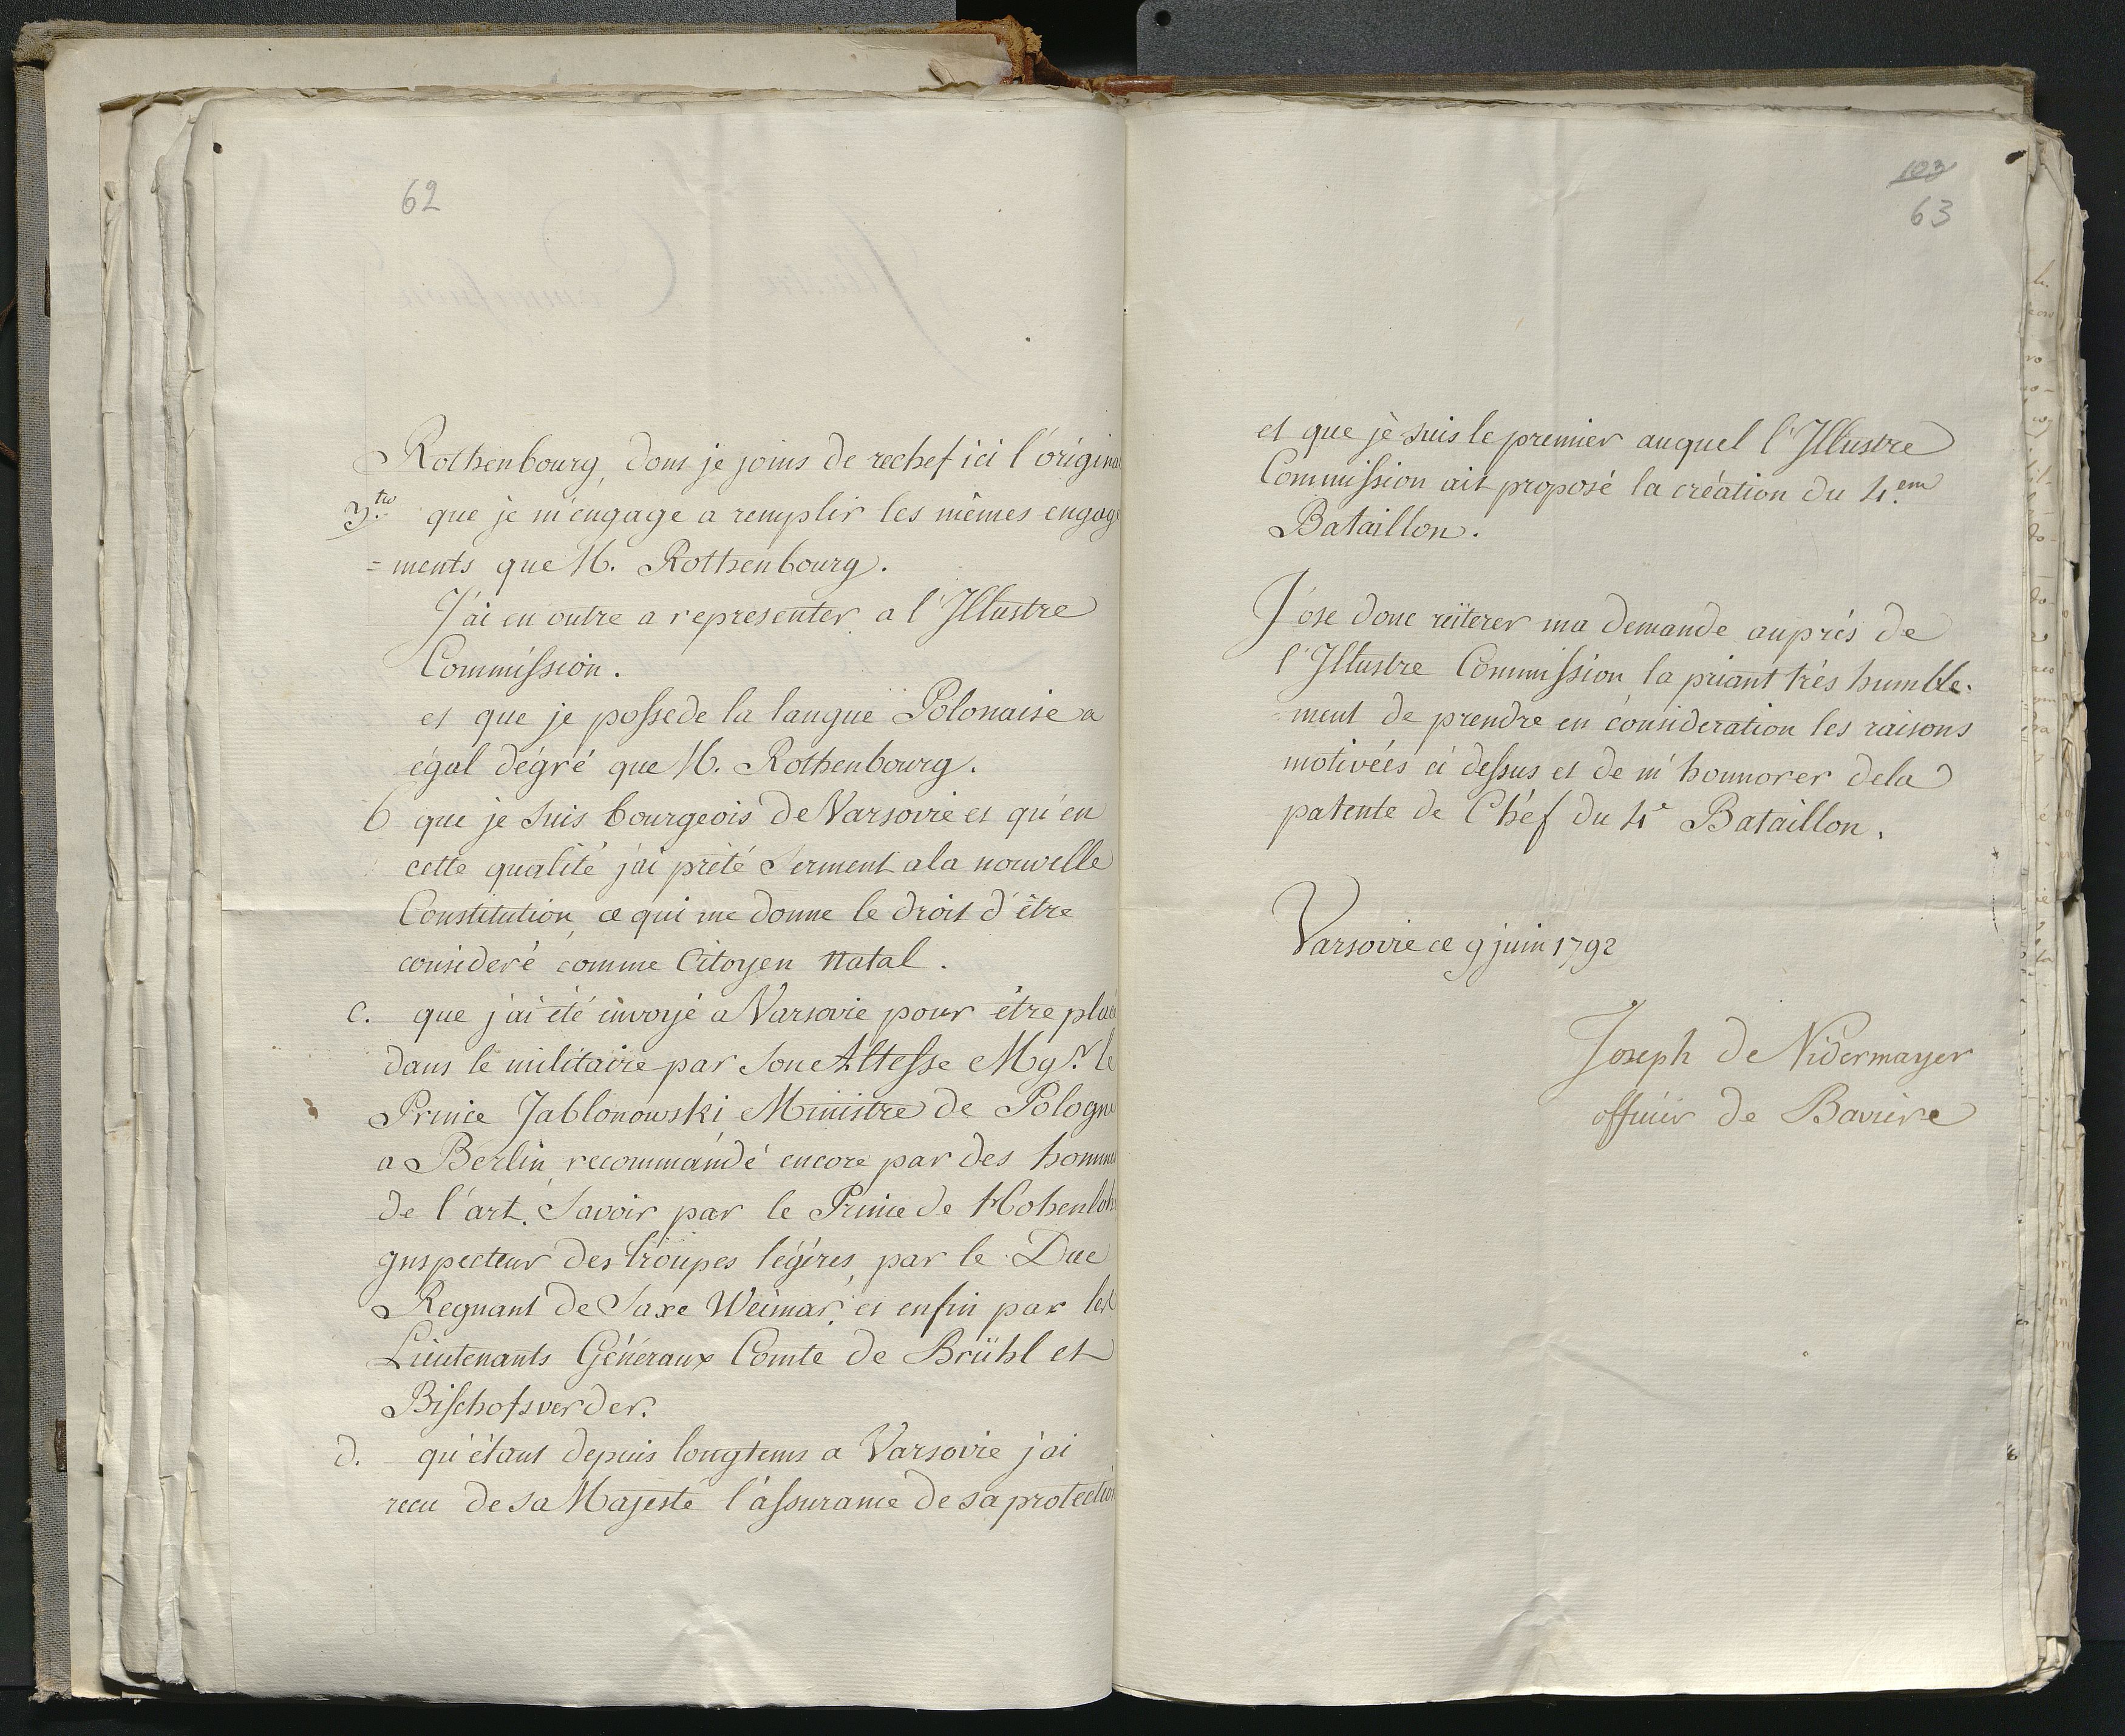 62
Rothenbourg, dont je joins de rechef ici l'origina
3.tio que je m'engage a remplir les mêmes engage
= ments que M. Rothenbourg.
J'ai en outre a representer a l'Illustre
Commission.
et que je possede la langue Polonaise a
égal dégré que M. Rothenbourg.
b que je suis bourgeois de Varsovie et qu'en
cette qualité j'ai prété Serment a la nouvelle
Constitution, ce qui me donne le droit d'être
consideré comme Citoyen natal.
c. que j'ai été envoyé a Varsovie pour être placé
dans le militaire par Son Altesse Mgr. le
Prince Jablonowski Ministre de Pologne
a Berlin, recommandé encore par des homme
de l'art. Savoir par le Prince de Hohenloh
Inspecteur des troupes légéres, par le Duc
Regnant de Saxe Weimar, et enfin par les
Lieutenants Géneraux Comte de Brühl et
Bischofsverder.
d. qu'étant depuis longtems a Varsovie j'ai
recu de sa Majesté l'assurance de sa protection
103
63
et que je suis le premier auquel l'Illustre
Commission ait proposé la création du 4.em
Bataillon.
J'ose donc reïterer ma demande auprés de
l'Illustre Commission, la priant trés humble-
= ment de prendre en consideration les raisons
motivées ci dessus et de m'honnorer de la
patente de Chéf du 4e Bataillon.
Varsovie ce 9 juin 1792
Joseph de Nidermayer
officier de Baviere